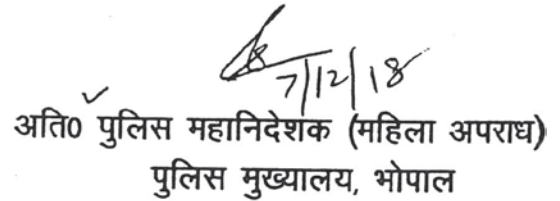 7/12/18
अति0 पुलिस महानिदेशक (महिला अपराध)
पुलिस मुख्यालय, भोपाल